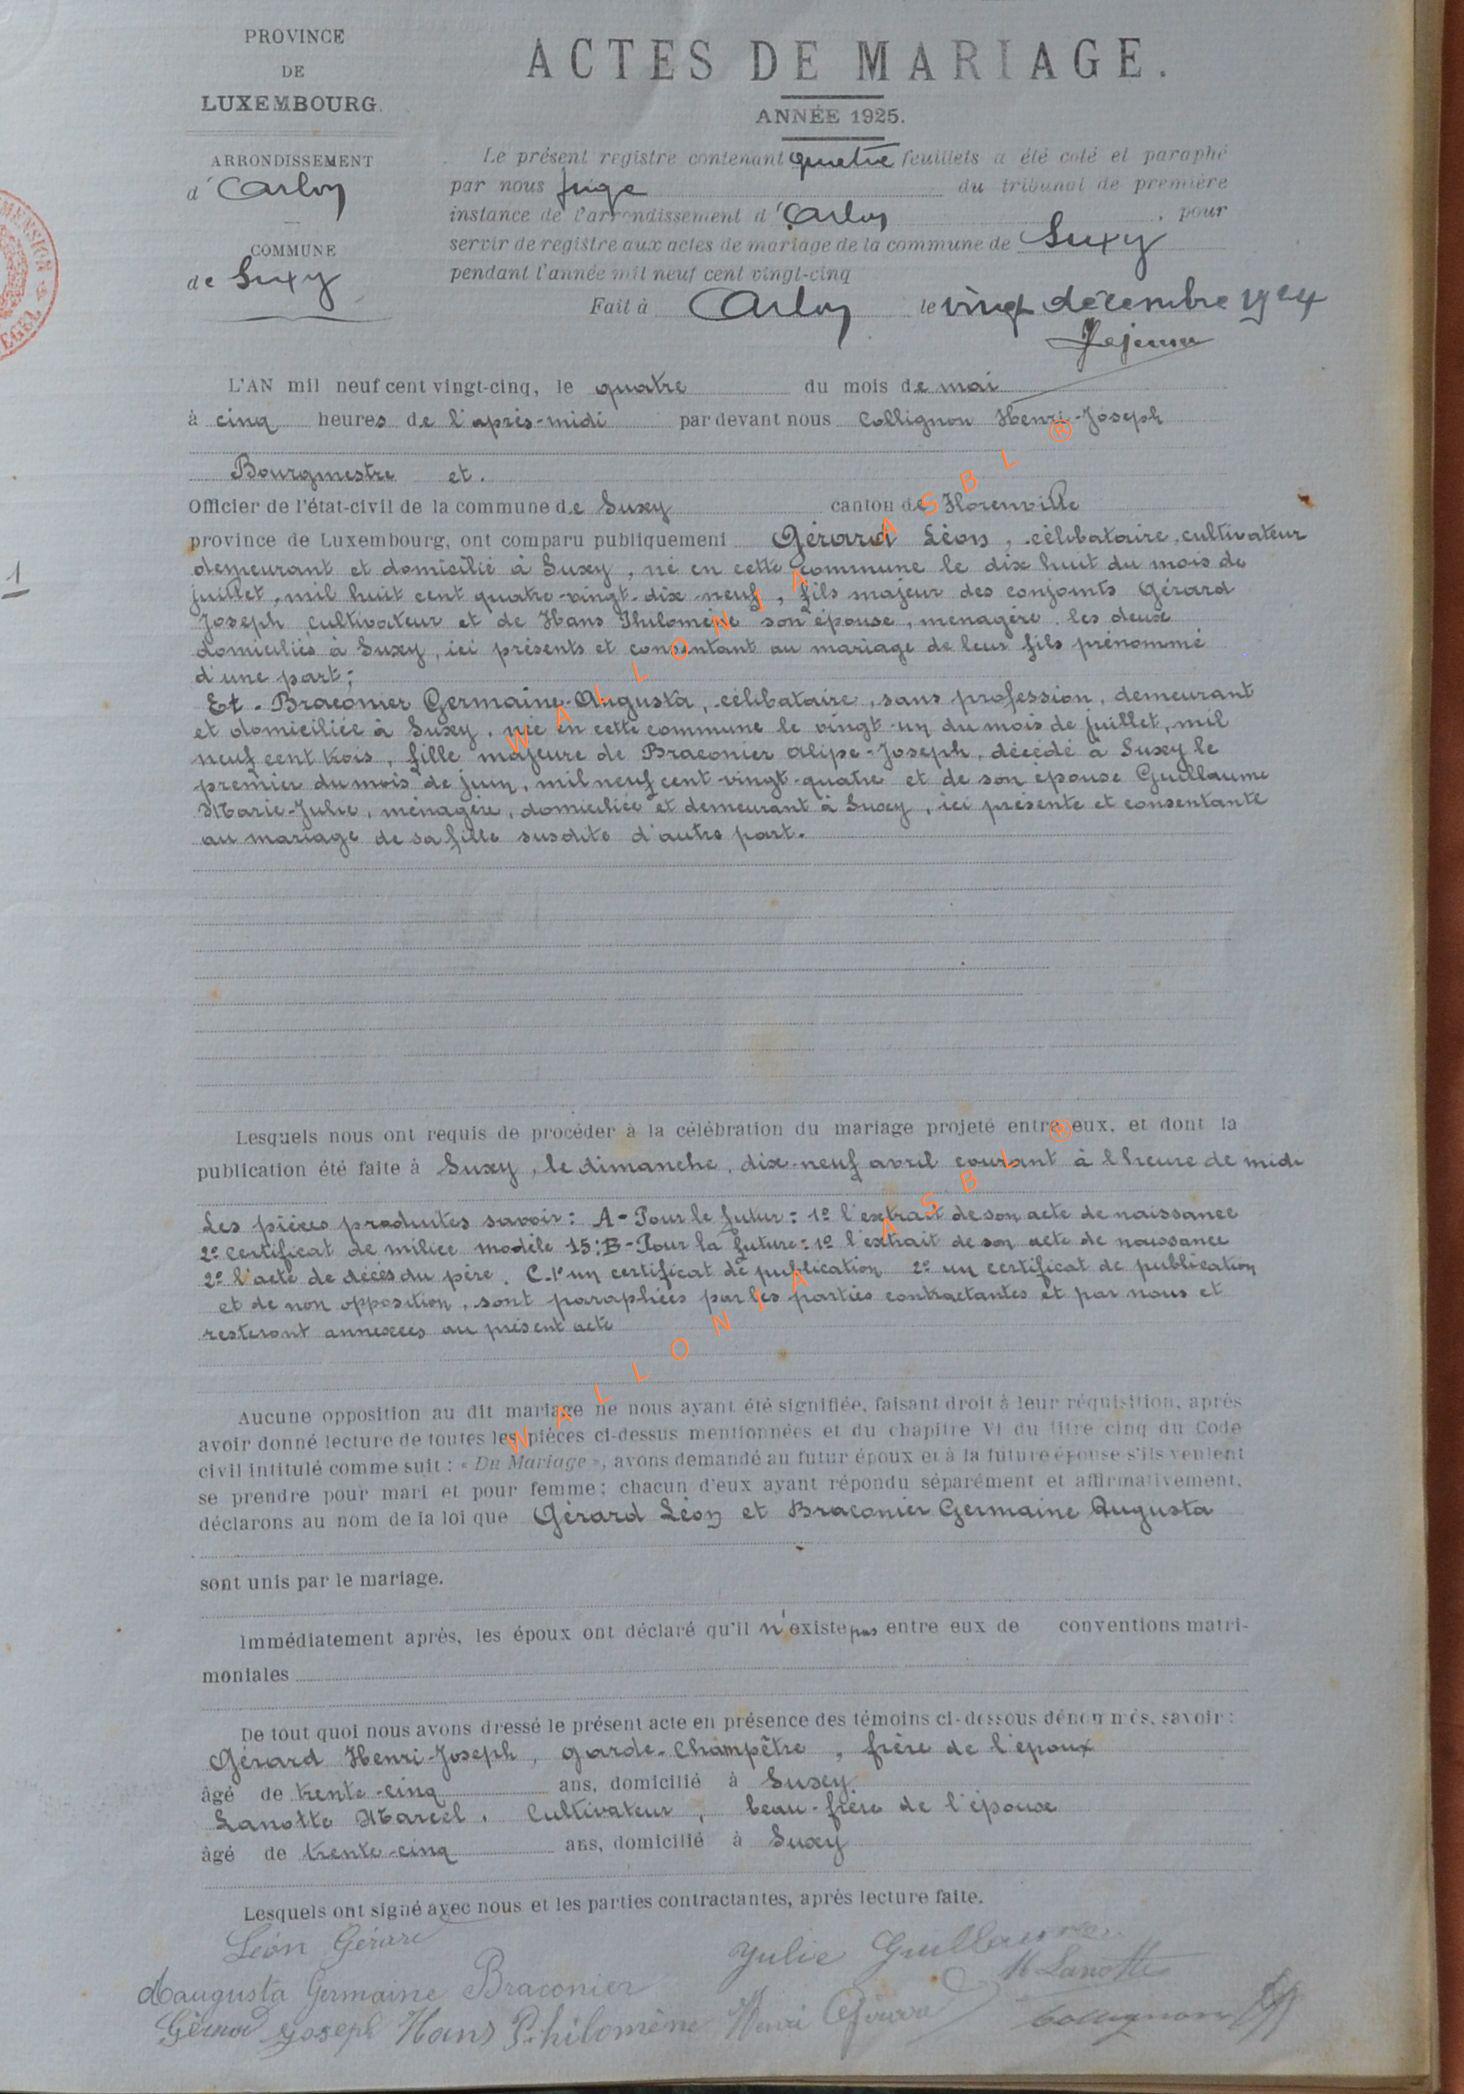 PROVINCE
DE
LUXEMBOURG.
ARRONDISSEMENT
d'Arlon
COMMUNE
de Suxy
ACTES DE MARIAGE.
ANNÉE 1925.
Le présent registre contenant quatre feuillets a été coté et paraphé
par nous juge du tribunal de première
instance de l'arrondissement d'Arlon, pour
servir de registre aux actes de mariage de la commune de Suxy
pendant l'année mil neuf cent vingt-cinq
Fait à Arlon le vingt décembre 1924
1
L'AN mil neuf cent vingt-cinq, le quatre du mois de mai
à cinq heures de l'après-midi par devant nous Collignon Henri-Joseph
Bourgmestre et.
Officier de l'état-civil de la commune de Suxy canton de Florenville
province de Luxembourg, ont comparu publiquement Gérard Léon, célibataire, cultivateur
demeurant et domicilié à Suxy, né en cette commune le dix huit du mois de
juillet, mil huit cent quatre-vingt-dix-neuf, fils majeur des conjoints Gérard
Joseph, cultivateur et de Hans Philomène son épouse, ménagère les deux
domiciliés à Suxy, ici présents et consentant au mariage de leur fils prénommé
d'une part;
Et. Braconier Germaine-Augusta, célibataire, sans profession, demeurant
et domiciliée à Suxy, née en cette commune le vingt-un du mois de juillet, mil
neuf cent trois, fille majeure de Braconier Alipe-Joseph, décédé à Suxy le
premier du mois de juin, mil neuf cent vingt-quatre et de son épouse Guillaume
Marie-Julie, ménagère, domiciliée et demeurant à Suxy, ici présente et consentante
au mariage de sa fille susdite d'autre part.
Lesquels nous ont requis de procéder à la célébration du mariage projeté entre eux, et dont la
publication été faite à Suxy, le dimanche, dix-neuf avril courant à l'heure de midi
Les pièces produites savoir: A-Pour le futur: 1º l'extrait de son acte de naissance
2º certificat de milice modèle 15; B-Pour la future: 1º l'extrait de son acte de naissance
2º l'acte de décès du père. C.1º un certificat de publication 2º un certificat de publication
et de non opposition, sont paraphées par les parties contractantes et par nous et
resteront annexées au présent acte
Aucune opposition au dit mariage ne nous ayant été signifiée, faisant droit à leur réquisition, après
avoir donné lecture de toutes les pièces ci-dessus mentionnées et du chapitre VI du titre cinq du Code
civil intitulé comme suit: « Du Mariage », avons demandé au futur époux et à la future épouse s'ils veulent
se prendre pour mari et pour femme; chacun d'eux ayant répondu séparément et affirmativement,
déclarons au nom de la loi que Gérard Léon et Braconier Germaine Augusta
sont unis par le mariage.
Immédiatement après, les époux ont déclaré qu'il n'existe pas entre eux de conventions matri-
moniales
De tout quoi nous avons dressé le présent acte en présence des témoins ci-dessous dénommés, savoir:
Gérard Henri-Joseph, garde-champêtre, frère de l'époux
âgé de trente-cinq ans, domicilié à Suxy
Lanotte Marcel, cultivateur, beau-frère de l'épouse
âgé de trente-cinq ans, domicilié à Suxy
Lesquels ont signé avec nous et les parties contractantes, après lecture faite.
Léon Gérard
Julie Guillaume
M Lanotte
augusta Germaine Braconier
Gérard Joseph Hans Philomène Henri Gérard Collignon
WALLONIA ASBL ®
WALLONIA ASBL ®